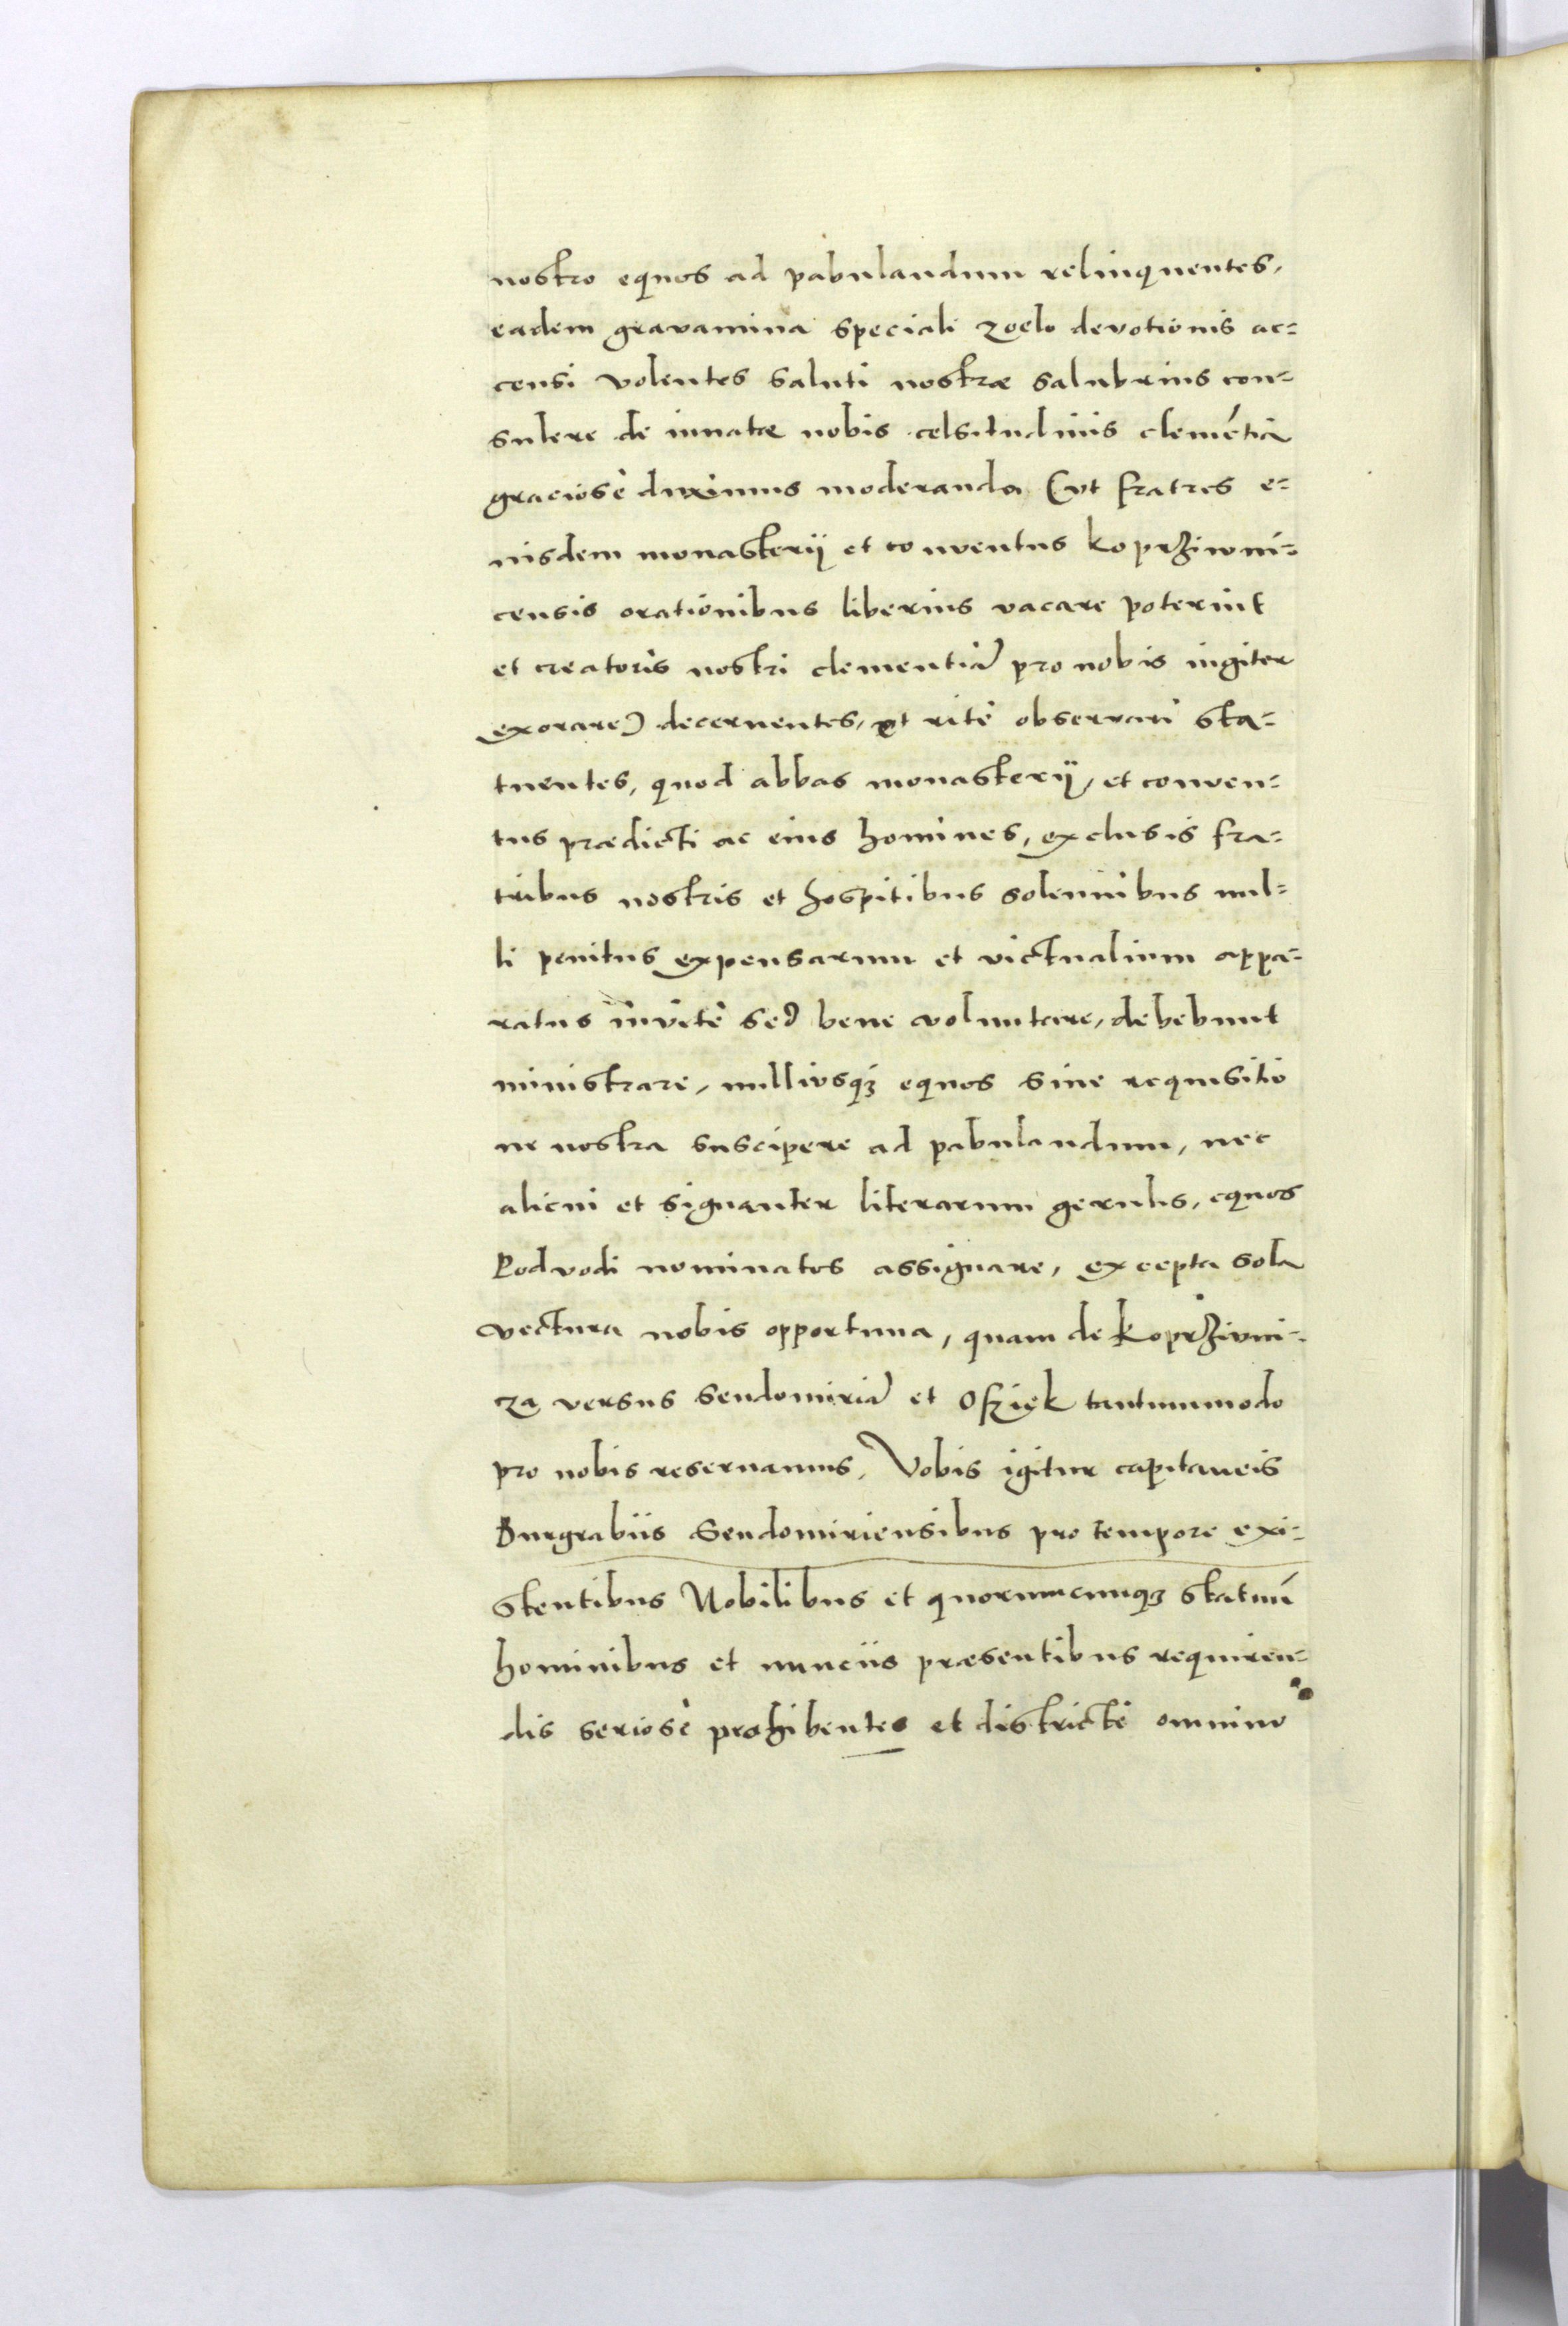 nostro equos ad pabulandum relinquentes,
eadem gravamina speciali zoelo devotionis ac=
censi volentes saluti nostræ salubrius con=
sulere de innatæ nobis celsitudinis cleme͂tia
graciosè duximus moderanda (vt fratres e=
iusdem monasterij et conventus koprživni=
censis orationibus liberius vacare poterint
et creatoris nostri clementiã pro nobis iugiter
exorare) decernentes, et ritè observari sta=
tuentes, quod abbas monasterij, et conven=
tus prædicti ac eius homines, exclusis fra=
tribus nostris et hospitibus solennibus nul=
li penitus expensarum et victualium appa=
ratus invitè sed bene voluntare, debebunt
ministrare, nulliusqꝫ equos sine requisitio
ne nostra suscipere ad pabulandum, nec
alicui et signanter literarum gerulis, equos
Podvodi nominatos assignare, excepta sola
vectura nobis opportuna, quam de koprživni=
cza versus Sendomiriã et Oszięk tantummodo
pro nobis reservamus. Vobis igitur capitaneis
Burgrabiis Sendomiriensibus pro tempore exi=
stentibus Nobilibus et quorumcunqꝫ statuu͂
hominibus et nunciis præsentibus requiren=
dis seriosè prohibentes et districtè omnino